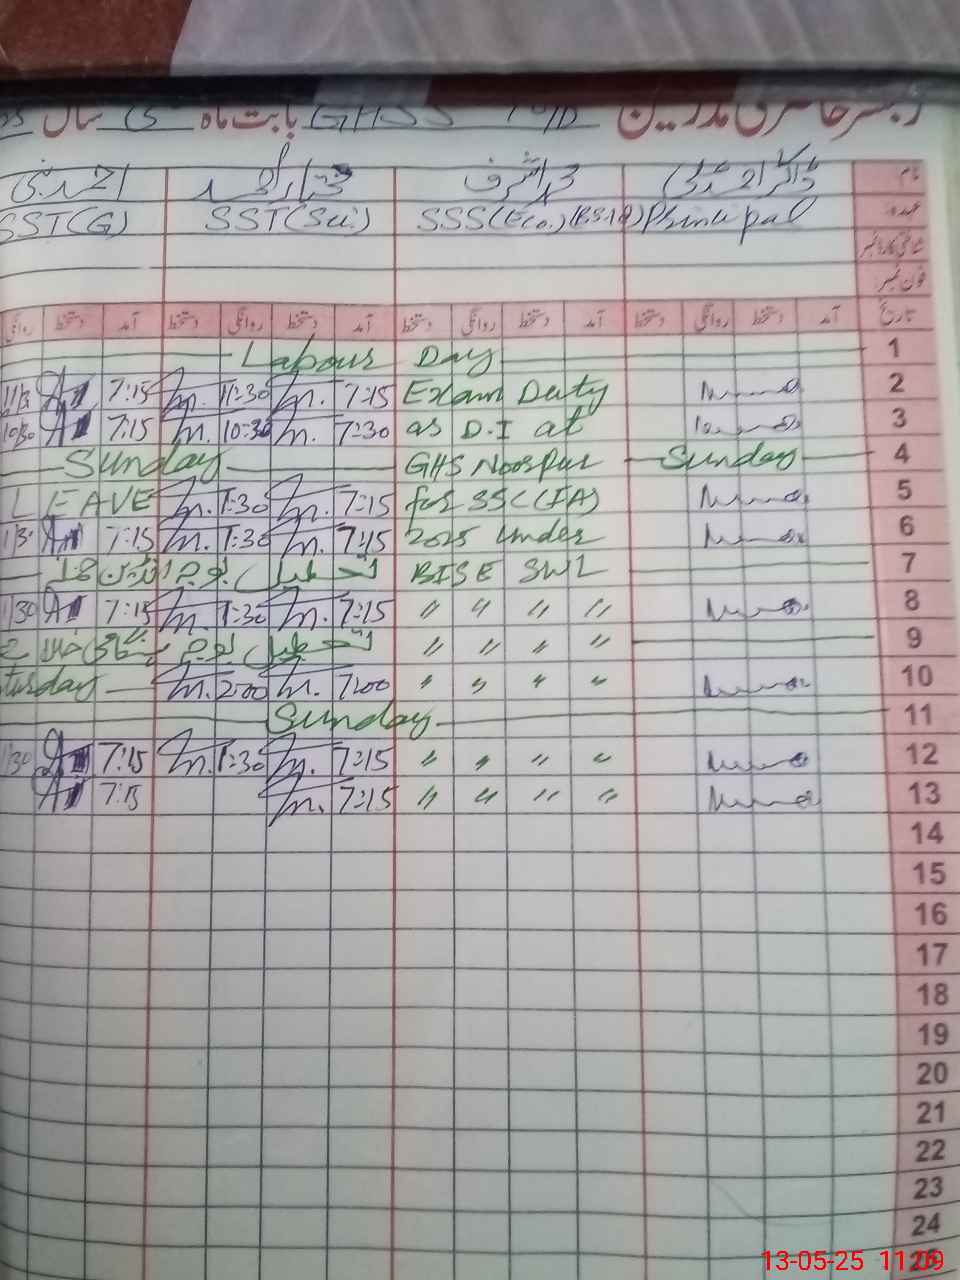 رجسٹر حاضری مدرسین GHSS بابت ماہ 5 سال
نام ڈاکٹر احمد علی محمد اشرف
عہدہ Principal SSS(Eco.) (BS-18) SST(Sci) SST(G)
شناختی کارڈ نمبر
فون نمبر
تاریخ آمد دستخط روانگی دستخط آمد دستخط روانگی دستخط آمد دستخط روانگی دستخط آمد دستخط روانگی
1 Labour Day
2 Exam Duty 7:15 11:30 7:15
3 as D.I at 7:30 10:30 7:15 10/30
4 Sunday GHS Noorpur Sunday
5 for SSC(IA) 7:15 1:30 LEAVE
6 2025 under 7:15 1:30 7:15 1/30
7 BISE SWL تعطیل بوجہ
8 " " " " 7:15 1:30 7:15 1/30
9 " " " " تعطیل بوجہ
10 " " " " 7:00 2:00 turday
11 Sunday
12 " " " " 7:15 1:30 7:15 1/30
13 " " " " 7:15 7:15
14
15
16
17
18
19
20
21
22
23
24
25
13-05-25 11:09